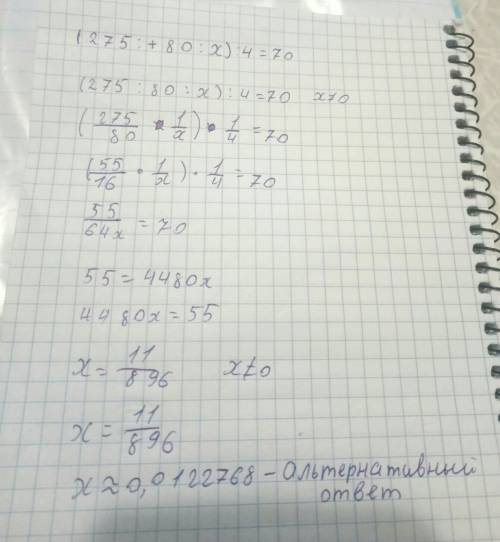 (275:+80:x):4=70
(275:80:x):4=70 x≠0
(275/80 · 1/x) · 1/4 = 70
(55/16 · 1/x) · 1/4 = 70
55/64x = 70
55=4480x
4480x=55
x = 11/896 x≠0
x = 11/896
x ≈ 0,0122768 - Ольтернативный
ответ